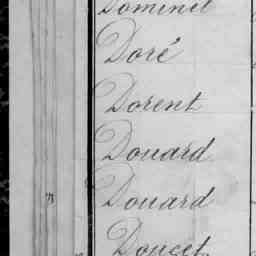 Dominel
Doré
Dorent
Douard
Douard
Doucet